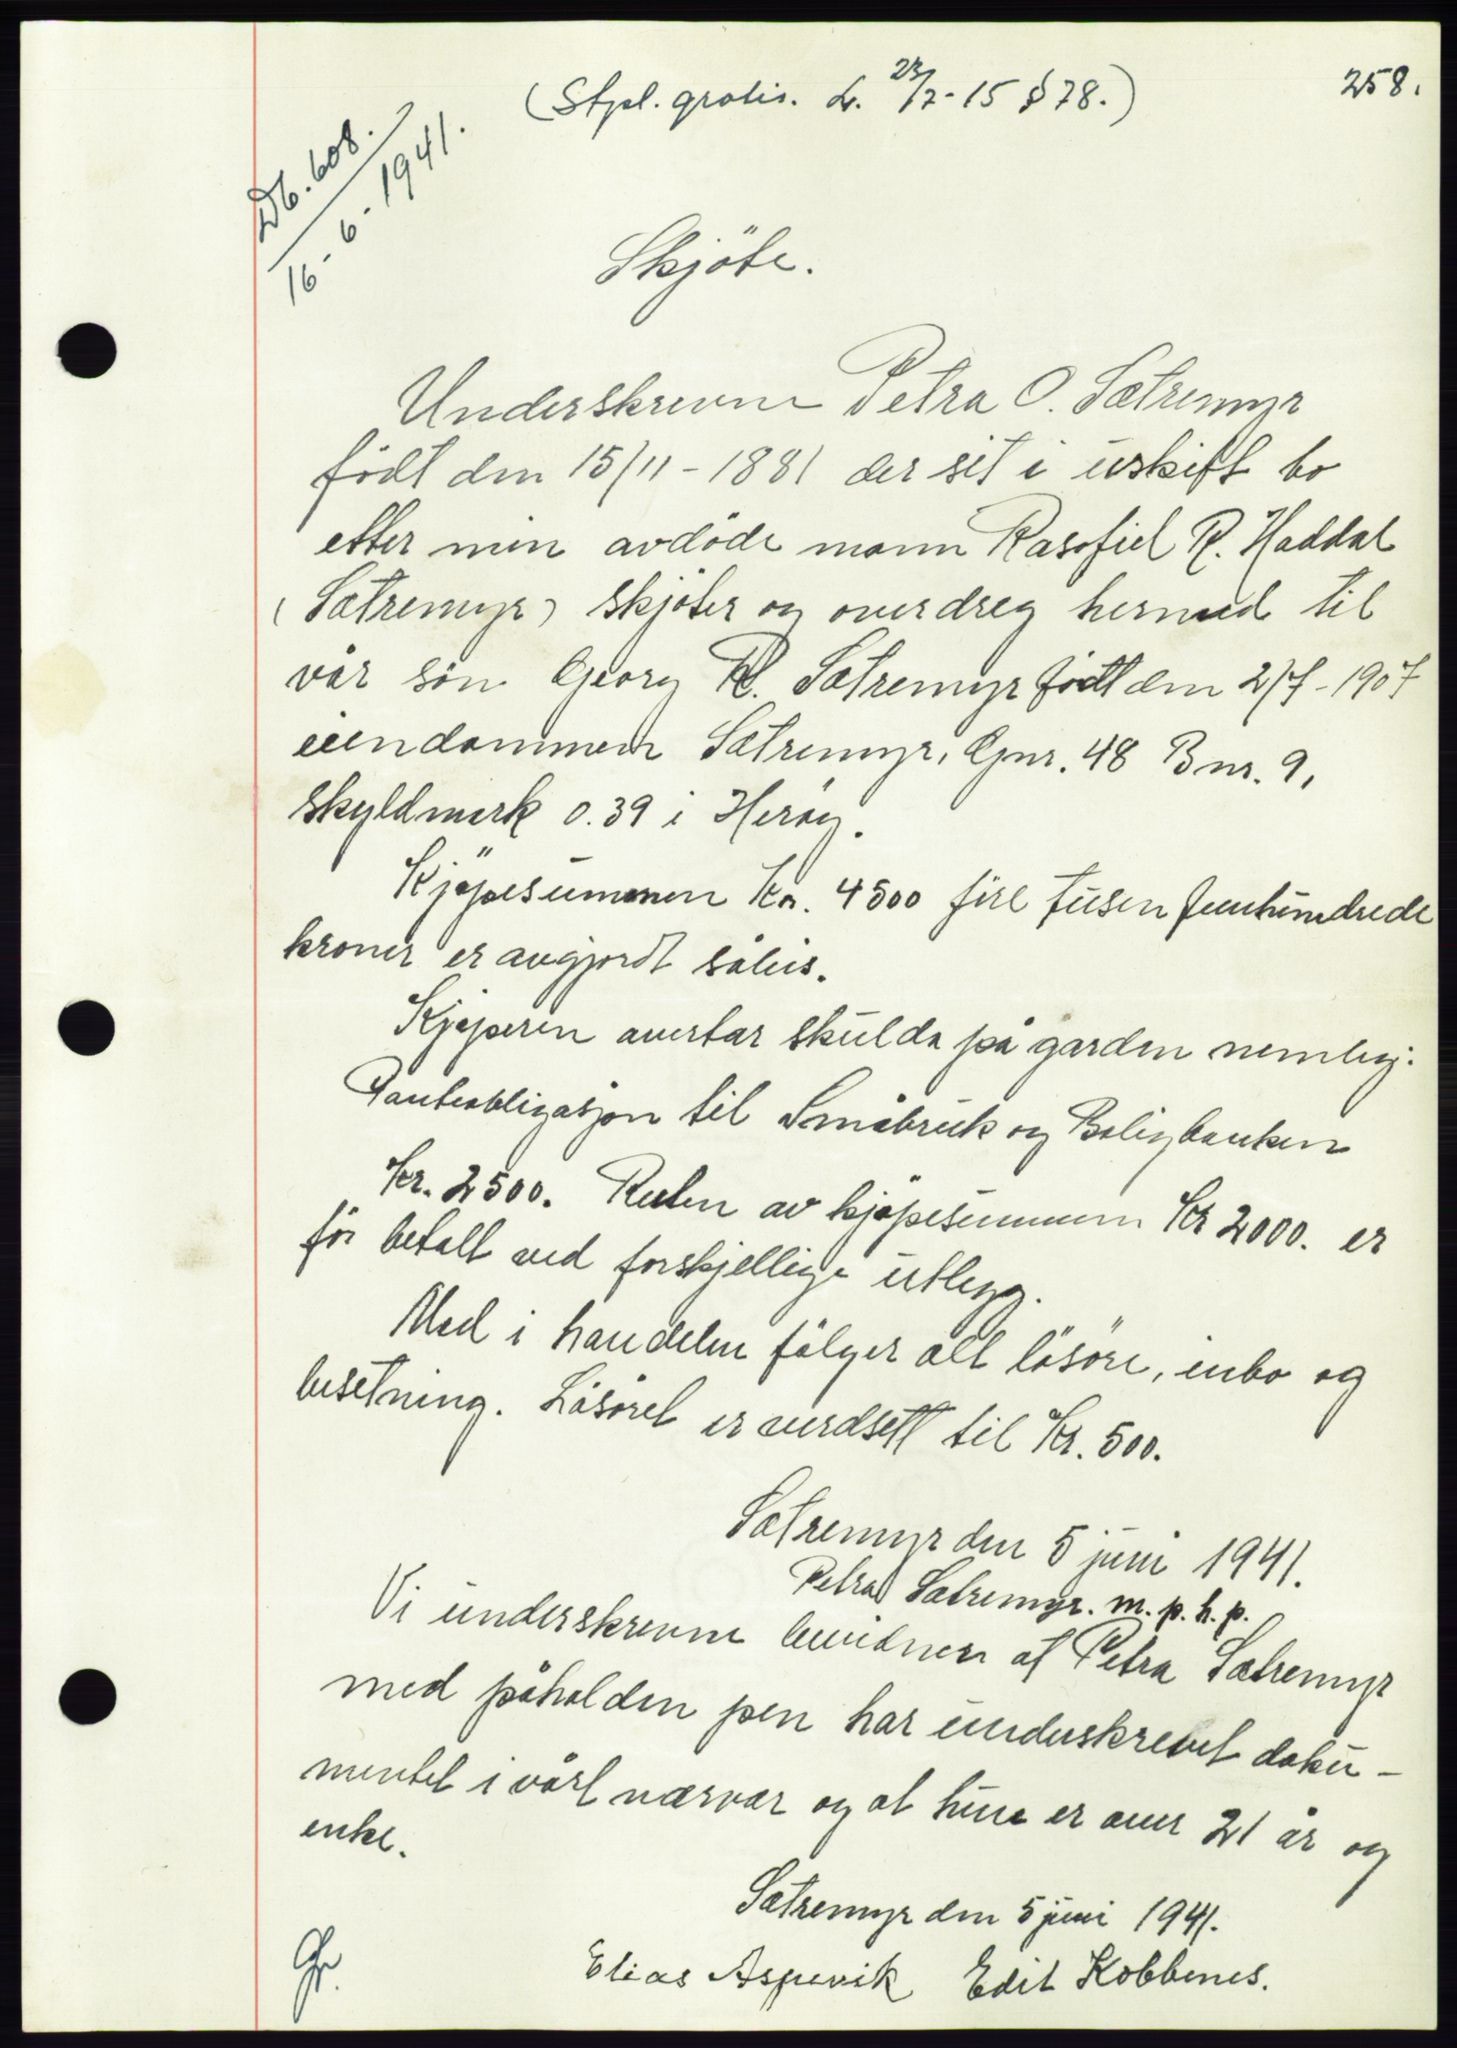 (Stpl. gratis. L. 23/7-15 § 78.)
258.
Db. 608.
16-6-1941.
Skjöte.
Underskrevne Petra O. Sætremyr
födt den 15/11-1881 der sit i uskift bo
etter min avdöde mann Rasofiel R. Haddal
(Sætremyr) skjöter og overdreg hermed til
vår sön Georg R. Sætremyr födt den 2/7-1907
eiendommen Sætremyr, Gnr. 48 Bnr. 9,
skyldmark 0.39 i Heröy.
Kjöpesummen Kr. 4500 fire tusen femhundrede
kroner er avgjordt såleis.
Kjöperen overtar skulda på garden nemleg:
Panteobligasjon til Småbruk og Boligbanken
Kr. 2500. Resten av kjöpesummen Kr 2000. er
för betalt ved forskjellige utlegg.
Med i handelen fölger alt lösöre, inbo og
besetning. Lösöret er verdsett til Kr. 500.
Sætremyr den 5 juni 1941.
Petra Sætremyr. m. p. h. p.
Vi underskrevne bevidner at Petra Sætremyr
med påholden pen har underskrevet doku-
mentet i vårt nærvær og at hun er over 21 år og
enke.
Sætremyr den 5 juni 1941.
Elias Aspevik Edit Kobbenes.